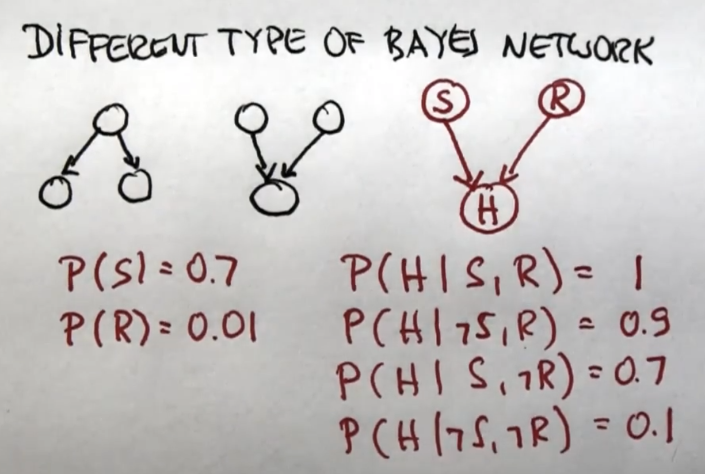 DIFFERENT TYPE OF BAYES NETWORK
S R
H
P(S) = 0.7
P(R) = 0.01
P(H | S, R) = 1
P(H | ¬S, R) = 0.9
P(H | S, ¬R) = 0.7
P(H | ¬S, ¬R) = 0.1